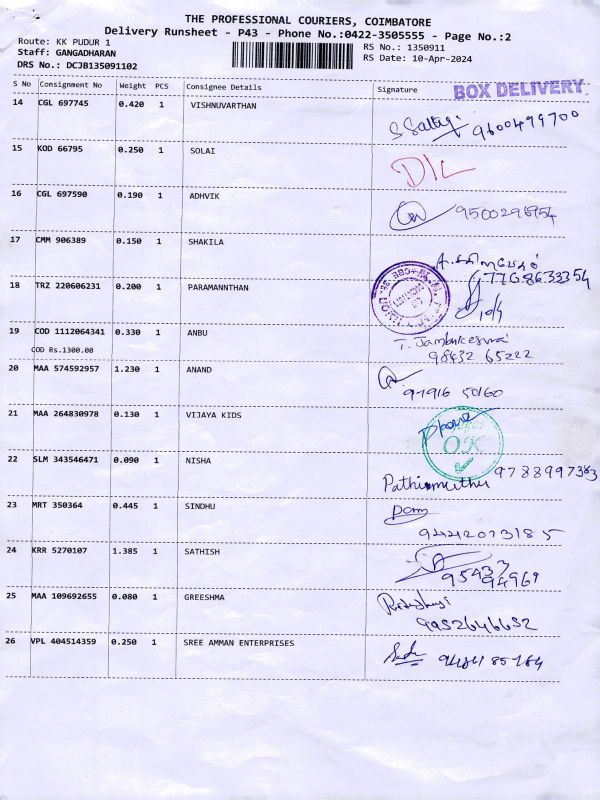 THE PROFESSIONAL COURIERS, COIMBATORE
Delivery Runsheet - P43 - Phone No.:0422-3505555 - Page No.:2
Route: KK PUDUR 1
RS No.: 1350911
Staff: GANGADHARAN
RS Date: 10-Apr-2024
DRS No.: DCJB135091102
S No Consignment No Weight PCS Consignee Details Signature
BOX DELIVERY
14 CGL 697745 0.420 1 VISHNUVARTHAN
9600499700
15 KOD 66795 0.250 1 SOLAI
D/L
16 CGL 697590 0.190 1 ADHVIK
9500296954
17 CMM 906389 0.150 1 SHAKILA
18 TRZ 220606231 0.200 1 PARAMANNTHAN
19 COD 1112064341 0.330 1 ANBU
COD Rs.1300.00
98432 65222
20 MAA 574592957 1.230 1 ANAND
97916 50160
21 MAA 264830978 0.130 1 VIJAYA KIDS
Phone
O.K
22 SLM 343546471 0.090 1 NISHA
Pathimuthu 9788997383
23 MRT 350364 0.445 1 SINDHU
9442073185
24 KRR 5270107 1.385 1 SATHISH
95433
94969
25 MAA 109692655 0.080 1 GREESHMA
9952646652
26 VPL 404514359 0.250 1 SREE AMMAN ENTERPRISES